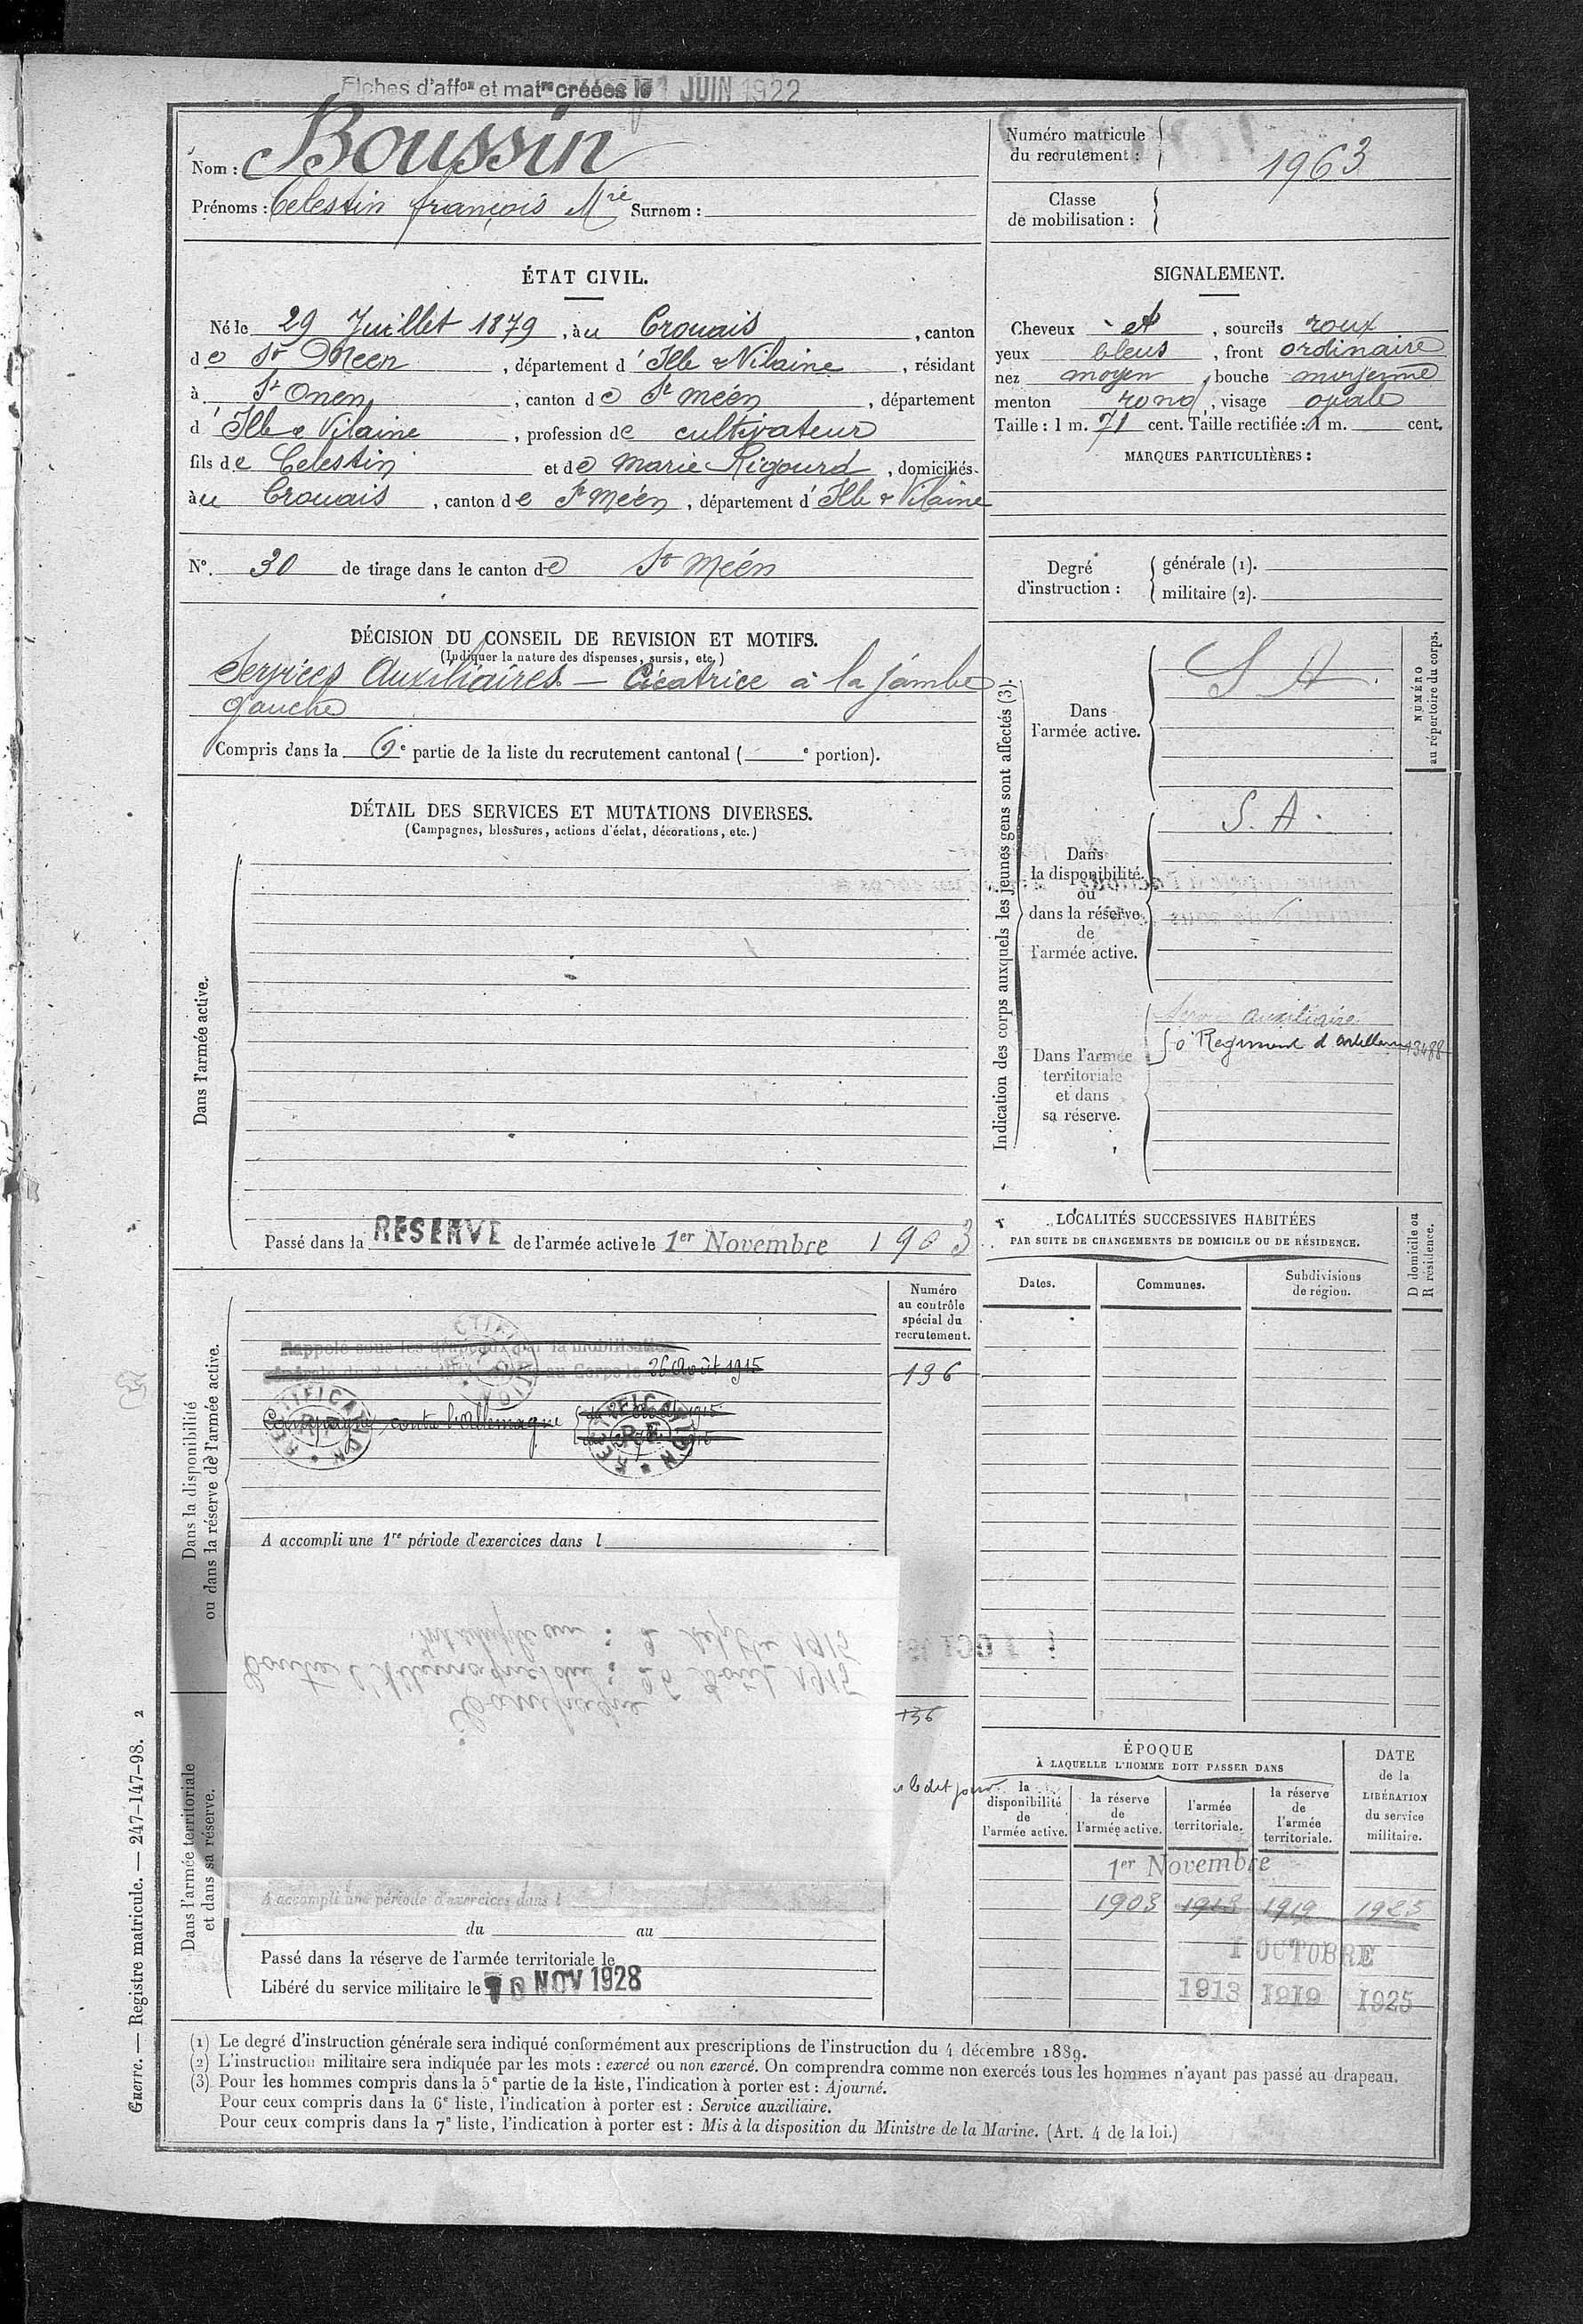 Fiches d'affon et matre créées le 1 JUIN 1922
Nom : Boussin
Prénoms : Celestin françois Mrie Surnom :
Numéro matricule du recrutement : 1963
Classe de mobilisation :
ÉTAT CIVIL.
Né le 29 Juillet 1879, à u Crouais, canton
de St Meen, département d'Ille & Vilaine, résidant
à St Onen, canton de St Méen, département
d'Ille & Vilaine, profession de cultivateur
fils de Celestin et de Marie Rigourd, domiciliés
à u Crouais, canton de St Méén, département d'Ille & Vilaine
N° 30 de tirage dans le canton de St Méén
SIGNALEMENT.
Cheveux et, sourcils roux
yeux bleus, front ordinaire
nez moyen, bouche moyenne
menton rond, visage ovale
Taille : 1 m. 71 cent. Taille rectifiée : 1 m. cent.
MARQUES PARTICULIÈRES :
Degré d'instruction :
générale (1).
militaire (2).
DÉCISION DU CONSEIL DE REVISION ET MOTIFS.
(Indiquer la nature des dispenses, sursis, etc.)
Services Auxiliaires — Cicatrice à la jambe
gauche
Compris dans la 6e partie de la liste du recrutement cantonal ( e portion).
DÉTAIL DES SERVICES ET MUTATIONS DIVERSES.
(Campagnes, blessures, actions d'éclat, décorations, etc.)
Dans l'armée active.
Passé dans la RESERVE de l'armée active le 1er Novembre 1903
Indication des corps auxquels les jeunes gens sont affectés (3).
NUMÉRO au répertoire du corps.
Dans l'armée active.
S A.
Dans la disponibilité ou dans la réserve de l'armée active.
S. A.
Dans l'armée territoriale et dans sa réserve.
auxiliaire
50e Regiment d'artillerie 13488
LOCALITÉS SUCCESSIVES HABITÉES
PAR SUITE DE CHANGEMENTS DE DOMICILE OU DE RÉSIDENCE.
Dates.
Communes.
Subdivisions de région.
D domicile ou R résidence.
Dans la disponibilité ou dans la réserve de l'armée active.
Numéro au contrôle spécial du recrutement.
Rappelé sous les drapeaux par la mobilisation
générale du 2 Août au Corps le 26 Août 1915
136
Campagne contre l'Allemagne
RECTIFICATION
A accompli une 1re période d'exercices dans l
Campagne
Contre l'Allemagne du : 26 Août 1915
au : 2 septbre 1915
Dans l'armée territoriale et dans sa réserve.
136
le dit jour.
A accompli une période d'exercices dans l
du au
Passé dans la réserve de l'armée territoriale le
Libéré du service militaire le 10 NOV 1928
ÉPOQUE
À LAQUELLE L'HOMME DOIT PASSER DANS
la disponibilité de l'armée active.
la réserve de l'armée active.
l'armée territoriale.
la réserve de l'armée territoriale.
DATE de la LIBÉRATION du service militaire.
1er Novembre
1903 1913 1919 1925
1 OCTOBRE
1913 1919 1925
(1) Le degré d'instruction générale sera indiqué conformément aux prescriptions de l'instruction du 4 décembre 1889.
(2) L'instruction militaire sera indiquée par les mots : exercé ou non exercé. On comprendra comme non exercés tous les hommes n'ayant pas passé au drapeau.
(3) Pour les hommes compris dans la 5e partie de la liste, l'indication à porter est : Ajourné.
Pour ceux compris dans la 6e liste, l'indication à porter est : Service auxiliaire.
Pour ceux compris dans la 7e liste, l'indication à porter est : Mis à la disposition du Ministre de la Marine. (Art. 4 de la loi.)
Guerre. — Registre matricule. — 247-147-98. 2